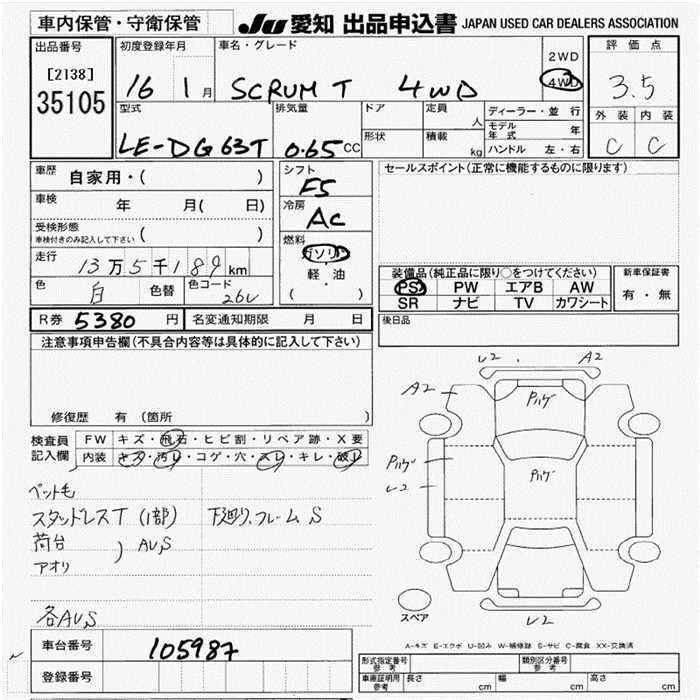 車内保管・守衛保管
JU 愛知 出品申込書 JAPAN USED CAR DEALERS ASSOCIATION
出品番号
[2138]
35105
初度登録年月
16 1月
車名・グレード
SCRUM T 4WD
2WD
4WD
評価点
3.5
外装 内装
C C
型式
LE-DG63T
排気量
0.65CC
ドア
形状
定員
人
積載
kg
ディーラー・並行
モデル年式 年
ハンドル 左・右
車歴 自家用・( )
車検 年 月( 日)
受検形態
車検付きのみ記入して下さい ( )
走行 13万5千189km
色 白 色替 色コード 26U
シフト
F5
冷房
AC
燃料
ガソリン
軽・油
( )
セールスポイント(正常に機能するものに限ります)
装備品(純正品に限り○をつけてください)
PS PW エアB AW
SR ナビ TV カワシート
新車保証書
有・無
後日品
R券 5380 円 名変通知期限 月 日
注意事項申告欄(不具合内容等は具体的に記入して下さい)
修復歴 有 (箇所 )
検査員
記入欄
FW キズ・飛石・ヒビ割・リペア跡・X要
内装 キズ・汚レ・コゲ・穴・スレ・キレ・破レ
ペット毛
スタッドレスT(1部) 下廻り、フレームS
荷台
アオリ ) AU,S
各AU,S
U2 A2
A2
Pハゲ
Pハゲ
U2
Pハゲ
U2
スペア
A-キズ E-エクボ U-凹み W-補修跡 S-サビ C-腐食 XX-交換済
車台番号 105987
登録番号
型式指定番号
参考
類別区分番号
参考
車庫証明用
参考
長さ cm 幅 cm 高さ cm